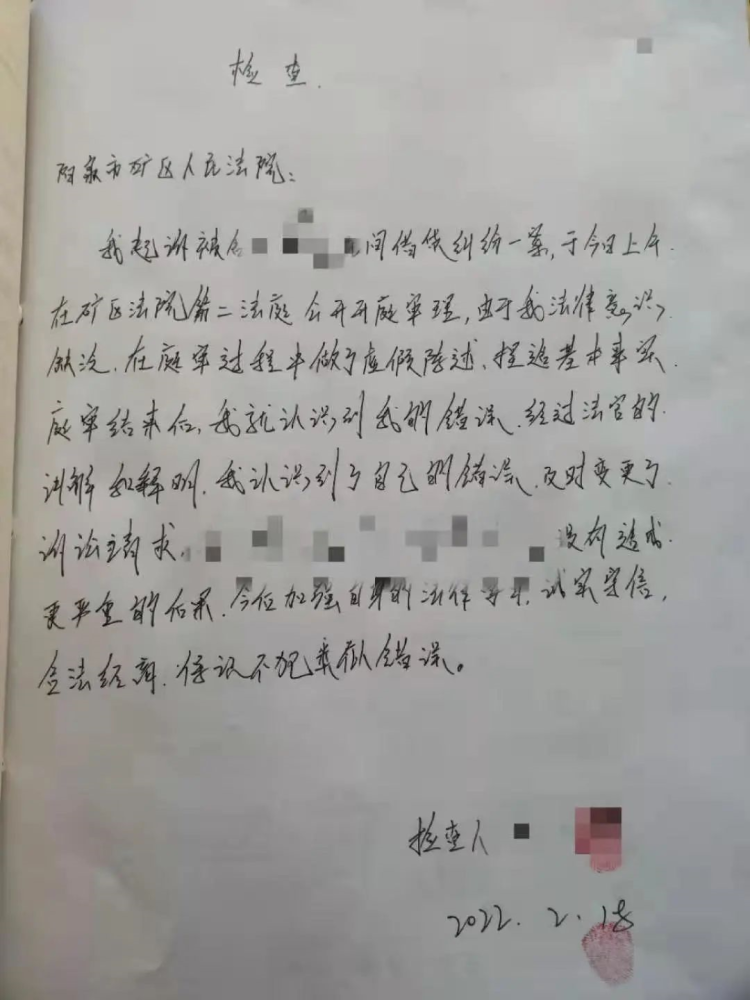 检查.
阳泉市矿区人民法院:
我起诉被告 间借贷纠纷一案,于今日上午.
在矿区法院第二法庭公开开庭审理,由于我法律意识
缺泛.在庭审过程中做了虚假陈述.捏造基本事实.
庭审结束后,我就认识到我的错误.经过法官的.
讲解和释明.我认识到了自己的错误.及时变更了.
诉讼请求. 没有造成.
更严重的后果.今后加强自身的法律学习.诚实守信,
合法经商.保证不犯类似错误。
检查人
2022.2.18